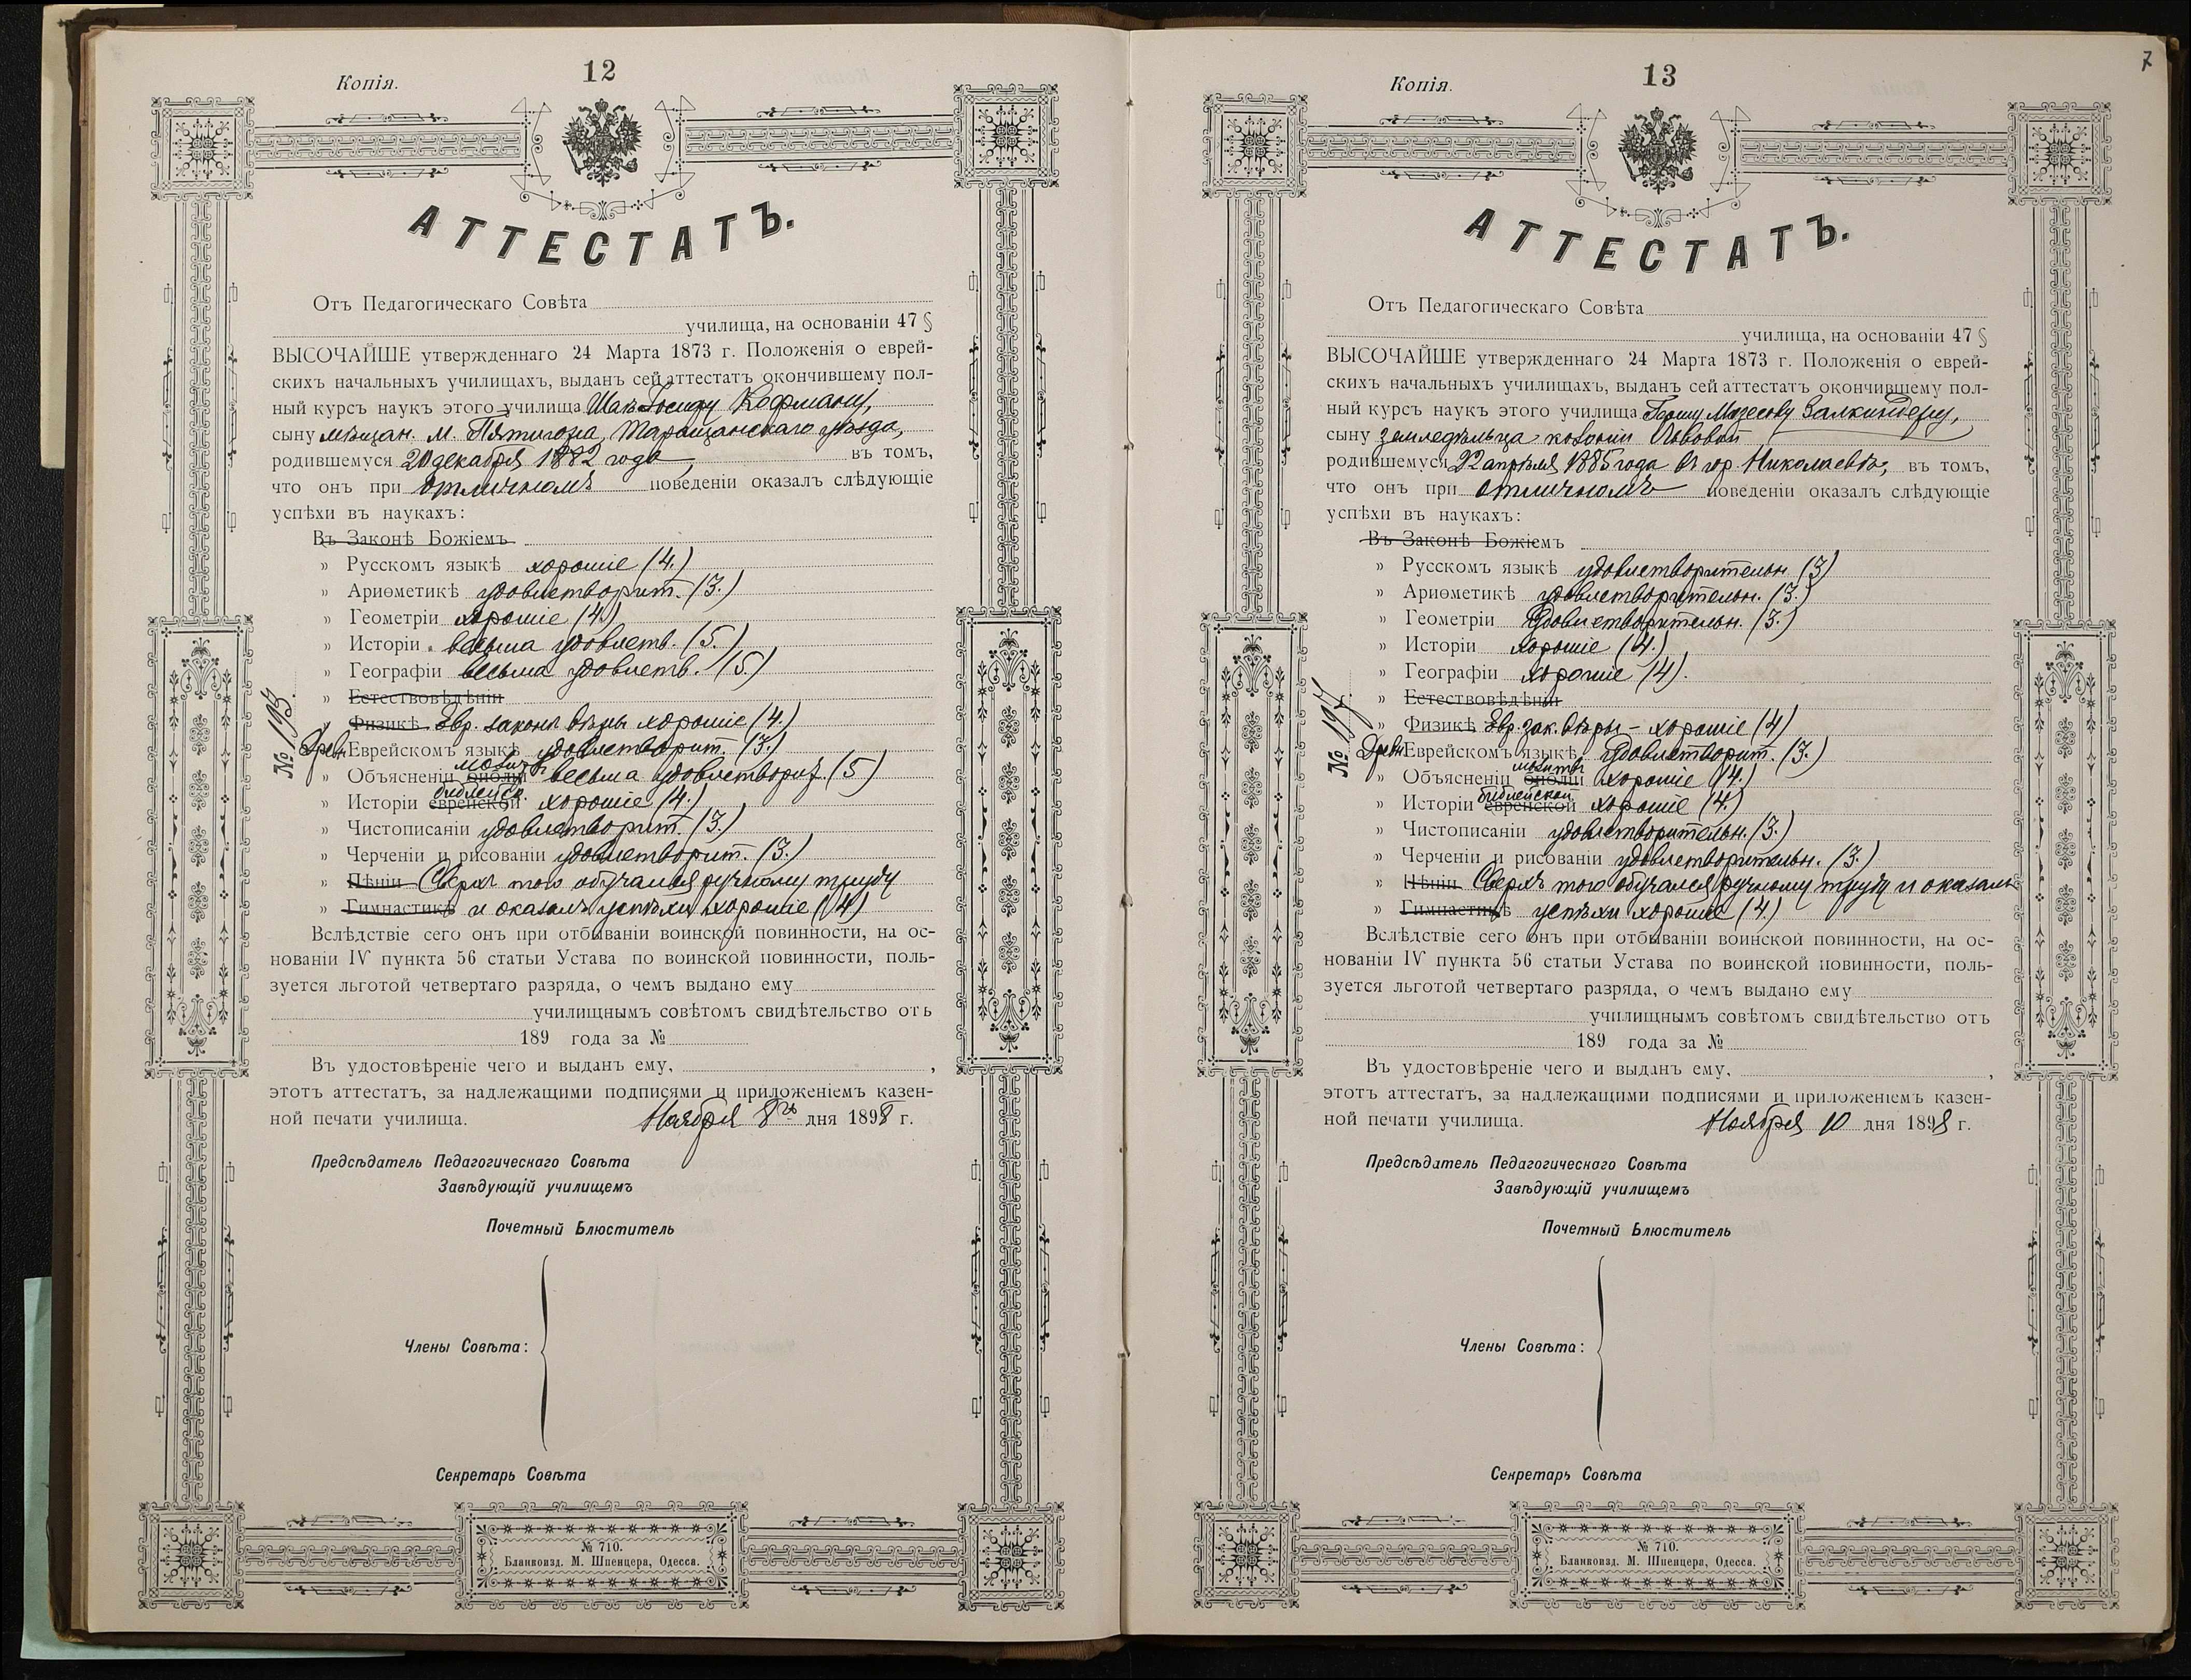 Копія.
12
АТТЕСТАТЪ.
Отъ Педагогическаго Совѣта
училища, на основаніи 47 §
ВЫСОЧАЙШЕ утвержденнаго 24 Марта 1873 г. Положенія о еврей-
скихъ начальныхъ училищахъ, выданъ сей аттестатъ окончившему пол-
ный курсъ наукъ этого училища Кофману,
сыну мѣщан. м. Пятигора, Таращанскаго уѣзда,
родившемуся 20 декабря 1882 года, въ томъ,
что онъ при отличномъ поведеніи оказалъ слѣдующіе
успѣхи въ наукахъ:
Въ Законѣ Божіемъ
» Русскомъ языкѣ хорошіе (4.)
» Ариѳметикѣ удовлетворит. (3.)
» Геометріи хорошіе (4)
» Исторіи весьма удовлетв. (5.)
» Географіи весьма удовлетв. (5)
» Естествовѣдѣніи
» Физикѣ Евр. законѣ вѣры хорошіе (4.)
№ 195.
Древн. Еврейскомъ языкѣ удовлетворит. (3.)
молитвъ
» Объясненіи библіи весьма удовлетворит. (5)
библейск.
» Исторіи еврейской хорошіе (4.)
» Чистописаніи удовлетворит. (3.)
» Черченіи и рисованіи удовлетворит. (3.)
» Пѣніи Сверхъ того обучался ручному труду
» Гимнастикѣ и оказалъ успѣхи хорошіе (4)
Вслѣдствіе сего онъ при отбываніи воинской повинности, на ос-
нованіи IV пункта 56 статьи Устава по воинской повинности, поль-
зуется льготой четвертаго разряда, о чемъ выдано ему
училищнымъ совѣтомъ свидѣтельство отъ
189 года за №
Въ удостовѣреніе чего и выданъ ему, ,
этотъ аттестатъ, за надлежащими подписями и приложеніемъ казен-
ной печати училища. Ноября 8го дня 1898 г.
Предсѣдатель Педагогическаго Совѣта
Завѣдующій училищемъ
Почетный Блюститель
Члены Совѣта:
Секретарь Совѣта
№ 710.
Бланкоизд. М. Шпенцера, Одесса.
Копія.
13
7
АТТЕСТАТЪ.
Отъ Педагогическаго Совѣта
училища, на основаніи 47 §
ВЫСОЧАЙШЕ утвержденнаго 24 Марта 1873 г. Положенія о еврей-
скихъ начальныхъ училищахъ, выданъ сей аттестатъ окончившему пол-
ный курсъ наукъ этого училища Гершу Залкиндеру,
сыну земледѣльца колоніи Львовой
родившемуся 22 апрѣля 1885 года въ гор. Николаевѣ, въ томъ,
что онъ при отличномъ поведеніи оказалъ слѣдующіе
успѣхи въ наукахъ:
Въ Законѣ Божіемъ
» Русскомъ языкѣ удовлетворительн. (3)
» Ариѳметикѣ удовлетворительн. (3.)
» Геометріи удовлетворительн. (3.)
» Исторіи хорошіе (4.)
» Географіи хорошіе (4).
» Естествовѣдѣніи
» Физикѣ Евр. зак. вѣры - хорошіе (4)
№ 197.
Древн. Еврейскомъ языкѣ удовлетворит. (3.)
молитвъ
» Объясненіи библіи хорошіе (4.)
библейской
» Исторіи еврейской хорошіе (4.)
» Чистописаніи удовлетворительн. (3.)
» Черченіи и рисованіи удовлетворительн. (3.)
» Пѣніи Сверхъ того обучался ручному труду и оказалъ
» Гимнастикѣ успѣхи хорошіе (4.)
Вслѣдствіе сего онъ при отбываніи воинской повинности, на ос-
нованіи IV пункта 56 статьи Устава по воинской повинности, поль-
зуется льготой четвертаго разряда, о чемъ выдано ему
училищнымъ совѣтомъ свидѣтельство отъ
189 года за №
Въ удостовѣреніе чего и выданъ ему, ,
этотъ аттестатъ, за надлежащими подписями и приложеніемъ казен-
ной печати училища. Ноября 10 дня 1898 г.
Предсѣдатель Педагогическаго Совѣта
Завѣдующій училищемъ
Почетный Блюститель
Члены Совѣта:
Секретарь Совѣта
№ 710.
Бланкоизд. М. Шпенцера, Одесса.